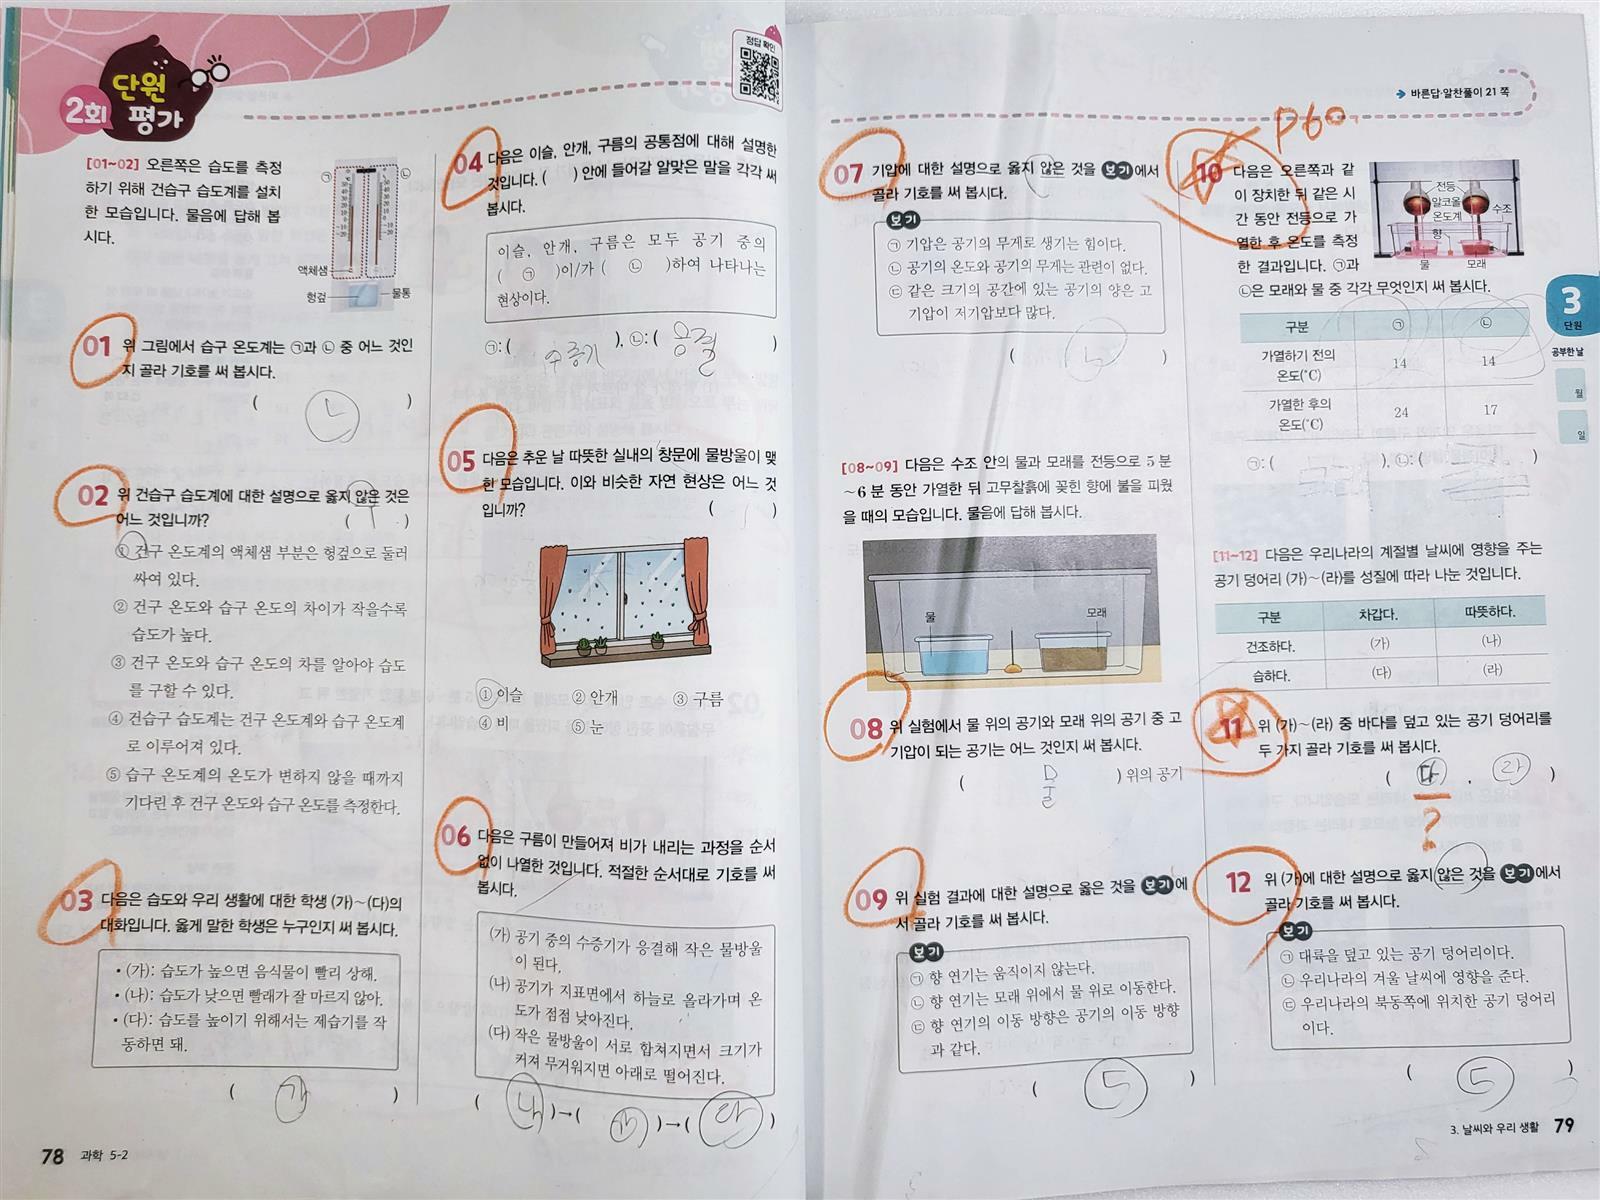 단원
평가
2회
정답 확인
[01~02] 오른쪽은 습도를 측정
하기 위해 건습구 습도계를 설치
한 모습입니다. 물음에 답해 봅
시다.
㉠
㉡
액체샘
헝겊
물통
01 위 그림에서 습구 온도계는 ㉠과 ㉡ 중 어느 것인
지 골라 기호를 써 봅시다.
( ㄴ )
02 위 건습구 습도계에 대한 설명으로 옳지 않은 것은
어느 것입니까? ( 1 )
① 건구 온도계의 액체샘 부분은 헝겊으로 둘러
싸여 있다.
② 건구 온도와 습구 온도의 차이가 작을수록
습도가 높다.
③ 건구 온도와 습구 온도의 차를 알아야 습도
를 구할 수 있다.
④ 건습구 습도계는 건구 온도계와 습구 온도계
로 이루어져 있다.
⑤ 습구 온도계의 온도가 변하지 않을 때까지
기다린 후 건구 온도와 습구 온도를 측정한다.
03 다음은 습도와 우리 생활에 대한 학생 (가)~(다)의
대화입니다. 옳게 말한 학생은 누구인지 써 봅시다.
• (가): 습도가 높으면 음식물이 빨리 상해.
• (나): 습도가 낮으면 빨래가 잘 마르지 않아.
• (다): 습도를 높이기 위해서는 제습기를 작
동하면 돼.
( 가 )
78 과학 5-2
04 다음은 이슬, 안개, 구름의 공통점에 대해 설명한
것입니다. ( ) 안에 들어갈 알맞은 말을 각각 써
봅시다.
이슬, 안개, 구름은 모두 공기 중의
( ㉠ )이/가 ( ㉡ )하여 나타나는
현상이다.
㉠: ( 수증기 ), ㉡: ( 응결 )
05 다음은 추운 날 따뜻한 실내의 창문에 물방울이 맺
힌 모습입니다. 이와 비슷한 자연 현상은 어느 것
입니까? ( 1 )
① 이슬 ② 안개 ③ 구름
④ 비 ⑤ 눈
06 다음은 구름이 만들어져 비가 내리는 과정을 순서
없이 나열한 것입니다. 적절한 순서대로 기호를 써
봅시다.
(가) 공기 중의 수증기가 응결해 작은 물방울
이 된다.
(나) 공기가 지표면에서 하늘로 올라가며 온
도가 점점 낮아진다.
(다) 작은 물방울이 서로 합쳐지면서 크기가
커져 무거워지면 아래로 떨어진다.
( 나 )→( 가 )→( 다 )
바른답·알찬풀이 21 쪽
07 기압에 대한 설명으로 옳지 않은 것을 보기에서
골라 기호를 써 봅시다.
보기
㉠ 기압은 공기의 무게로 생기는 힘이다.
㉡ 공기의 온도와 공기의 무게는 관련이 없다.
㉢ 같은 크기의 공간에 있는 공기의 양은 고
기압이 저기압보다 많다.
( ㄴ )
[08~09] 다음은 수조 안의 물과 모래를 전등으로 5 분
~6 분 동안 가열한 뒤 고무찰흙에 꽂힌 향에 불을 피웠
을 때의 모습입니다. 물음에 답해 봅시다.
물
모래
08 위 실험에서 물 위의 공기와 모래 위의 공기 중 고
기압이 되는 공기는 어느 것인지 써 봅시다.
( 물 ) 위의 공기
09 위 실험 결과에 대한 설명으로 옳은 것을 보기에
서 골라 기호를 써 봅시다.
보기
㉠ 향 연기는 움직이지 않는다.
㉡ 향 연기는 모래 위에서 물 위로 이동한다.
㉢ 향 연기의 이동 방향은 공기의 이동 방향
과 같다.
( ㄷ )
P60
10 다음은 오른쪽과 같
이 장치한 뒤 같은 시
간 동안 전등으로 가
열한 후 온도를 측정
한 결과입니다. ㉠과
㉡은 모래와 물 중 각각 무엇인지 써 봅시다.
전등
알코올
온도계
수조
향
물
모래
구분 ㉠ ㉡
가열하기 전의
온도(℃) 14 14
가열한 후의
온도(℃) 24 17
㉠: ( ), ㉡: ( )
[11~12] 다음은 우리나라의 계절별 날씨에 영향을 주는
공기 덩어리 (가)~(라)를 성질에 따라 나눈 것입니다.
구분 차갑다. 따뜻하다.
건조하다. (가) (나)
습하다. (다) (라)
11 위 (가)~(라) 중 바다를 덮고 있는 공기 덩어리를
두 가지 골라 기호를 써 봅시다.
( 다 , 라 )
?
12 위 (가)에 대한 설명으로 옳지 않은 것을 보기에서
골라 기호를 써 봅시다.
보기
㉠ 대륙을 덮고 있는 공기 덩어리이다.
㉡ 우리나라의 겨울 날씨에 영향을 준다.
㉢ 우리나라의 북동쪽에 위치한 공기 덩어리
이다.
( ㄷ )
3
단원
공부한 날
월
일
3. 날씨와 우리 생활 79